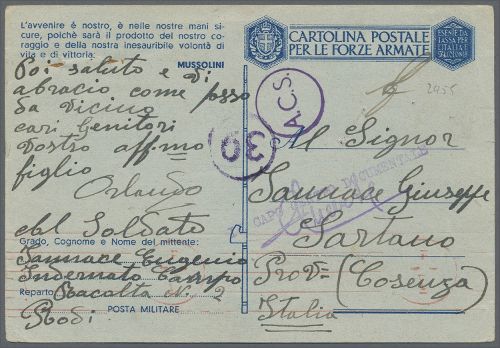 L'avvenire è nostro, è nelle nostre mani si-
cure, poichè sarà il prodotto del nostro co-
raggio e della nostra inesauribile volontà di
vita e di vittoria:
MUSSOLINI
Poi saluto e Di
abracio come posso
Da Vicino
cari Genitori
Vostro affimo
figlio
Orlando
del Soldato
Grado, Cognome e Nome del mittente:
Iannace Eugenio
Internato Campo
Reparto Racolta N. 2
Rodi
POSTA MILITARE
CARTOLINA POSTALE
PER LE FORZE ARMATE
ESENTE DA
TASSA PER
L'ITALIA E
A.C.S.
30
2455
Al Signor
Iannace Giuseppe
Lattano
Prov (Cosenza)
Italia